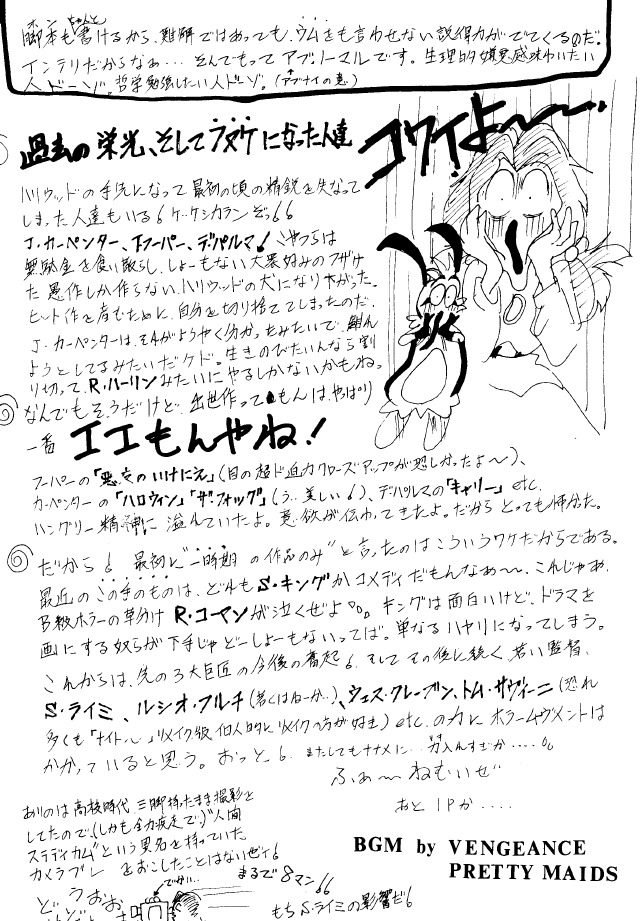 ホン ちゃんと
脚本も書けるから、難解ではあっても、ウムをも言わせない説得力がでてくるのだ。
インテリだからなぁ…そんでもってアブノーマルです。生理的嫌悪感味わいたい
人ドーゾ。哲学勉強したい人ドーゾ。(アブナイの意)
過去の栄光、そしてフヌケになった人達
コワイよ〜〜
ハリウッドの手先になって最初の頃の精鋭を失なって
しまった人達もいる!ケッケシカランぞっ!!
J・カーペンター、T・フーパー、デ・パルマ!こやつらは
無駄金を食い散らし、しょーもない大衆好みのフザケ
た愚作しか作らない、ハリウッドの犬になり下がった。
ヒット作を産むために、自分を切り捨ててしまったのだ。
J・カーペンターは、それがようやく分かったみたいで、
ようとしてるみたいだケド。生きのびたいんなら割
り切って、R・ハーリンみたいにやるしかないかもね。
なんでもそうだけど、出世作ってもんは、やっぱり
一番 エエもんやね!
フーパーの「悪魔のいけにえ」(目の超ド迫力クローズアップが恐しかったよ〜)、
カーペンターの「ハロウィン」「ザ・フォッグ」(う…美しい!)、デ・パルマの「キャリー」etc.
ハングリー精神に溢れていたよ。意欲が伝わってきたよ。だからとっても怖かった。
だから!最初に"一時期の作品のみ"と言ったのはこういうワケだからである。
最近のこの手のものは、どれもS・キングかコメディだもんなぁ〜、これじゃあ、
B級ホラーの草分けR・コーマンが泣くぜよ。キングは面白いけど、ドラマを
画にする奴らが下手じゃどーしょーもないってば。単なるハヤリになってしまう。
これからは、先の3大巨匠の今後の奮起!そしてその後に続く、若い監督、
S・ライミ、ルシオ・フルチ(若くはねーか…)、ウェス・クレーブン、トム・サヴィーニ(恐れ
多くも「ナイト〜」リメイク版 個人的にリメイクの方が好き)etc.の力にホラームーヴメントは
かかっていると思う。おっと!またしてもナナメに…力入んすぎか……
ふぁ〜ねむいぜ
あと1Pか……
ありのは高校時代、三脚持ったまま撮影と
してたので、(しかも全力疾走で)"人間
ステディカム"という異名を持っていた。
カメラブレをおこしたことはないぜィ!
まるで8マン!!
どうおお
もち S・ライミの影響だ!
BGM by VENGEANCE
PRETTY MAIDS